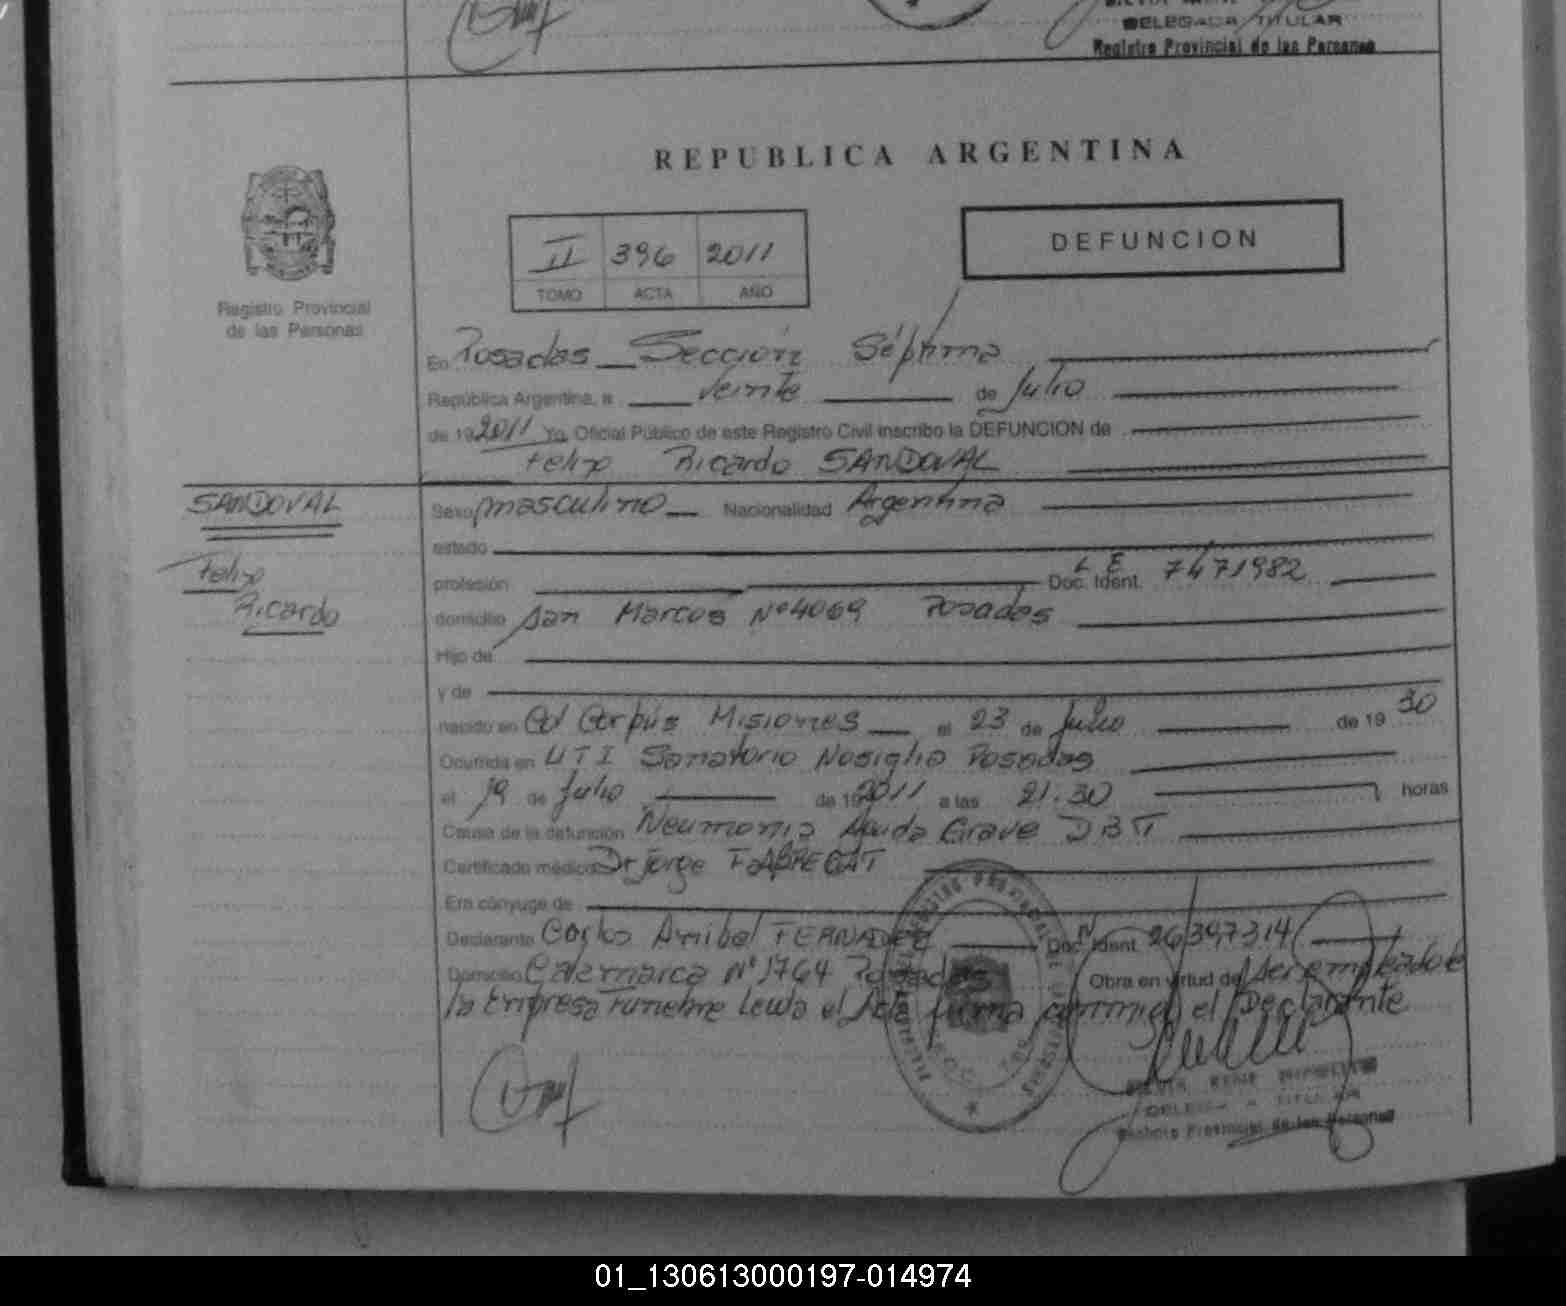 DELEGADA TITULAR
Registro Provincial de las Personas
REPUBLICA ARGENTINA
II 396 2011
TOMO ACTA AÑO
DEFUNCION
Registro Provincial
de las Personas
En Posadas Sección Séptima
República Argentina, a veinte de Julio
de 19 2011 Yo, Oficial Público de este Registro Civil inscribo la DEFUNCION de
Felipe Ricardo SANDOVAL
SANDOVAL
Felipe
Ricardo
Sexo masculino Nacionalidad Argentina
estado
profesión Doc. Ident. L E 7471982
domicilio San Marcos Nº 4069 Posadas
Hijo de
y de
nacido en Col Corpus Misiones el 23 de Julio de 19 30
Ocurrida en UTI Sanatorio Nosiglia Posadas
el 19 de Julio de 19 2011 a las 21.30 horas
Causa de la defunción Neumonia Aguda Grave DBT
Certificado médico Dr Jorge FABREGAT
Era cónyuge de
Declarante Carlos Anibal FERNADEZ Doc. Ident. 26397314
Domicilio Catamarca Nº 1764 Posadas Obra en virtud de ser empleado de
la Empresa Funebre Leida el Acta firma conmigo el Declarante
DELEGADA TITULAR
Registro Provincial de las Personas
01_130613000197-014974